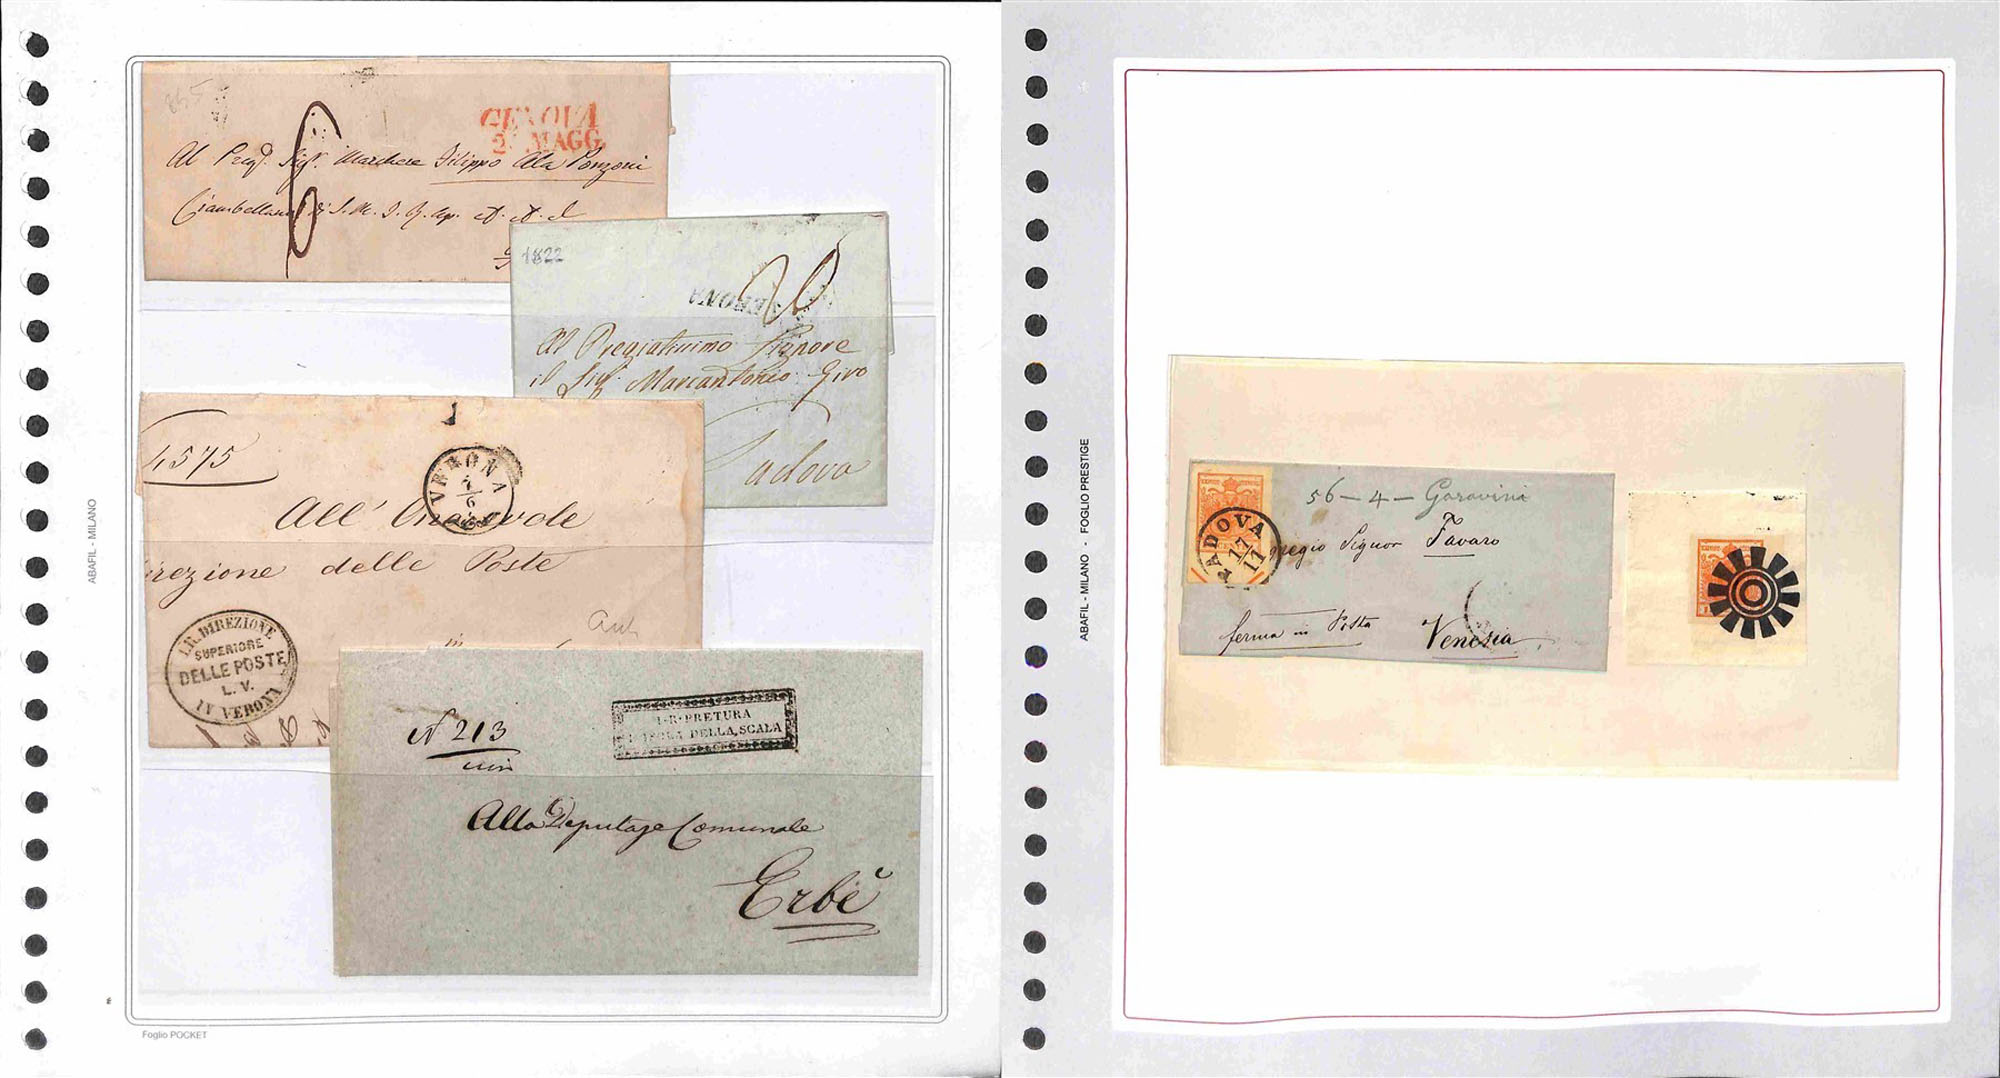 ABAFIL - MILANO
GENOVA
MAGG.
Al Preg.º Sigr. Marchese Filippo Ala Ponzoni
Ciambellano di S. M. I. R. Ap.
1822
VERONA
Al Pregiatissimo Signore
il Sigr. Marcantonio Giro
Padova
4575
VERONA
7
6
All' Onorevole
irezione delle Poste
I.R. DIREZIONE
SUPERIORE
DELLE POSTE
L. V.
IN VERONA
N 213
I. R. PRETURA
ISOLA DELLA SCALA
Alla Deputazе Comunale
Erbè
Foglio POCKET
ABAFIL - MILANO - FOGLIO PRESTIGE
56 - 4 - Garavini
PADOVA
17
11
Signor Favaro
ferma in Posta
Venezia